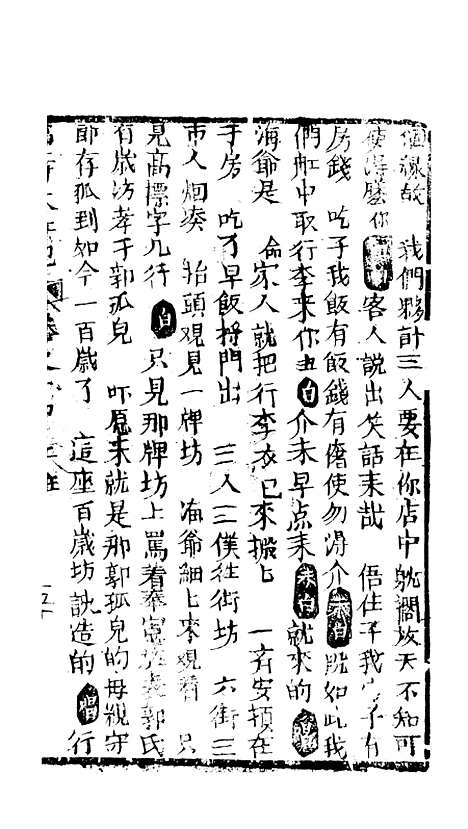 個緣故　我們夥計三人要在你店中躭擱放天不知可
使得麽你　客人說出笑話來哉　俉住子我子有
房錢　吃子我飯有飯錢有儕使勿淂介　來白　旣如此我
們舡中取行李來你　白　介未早点來　來白　就來的　唱
海爺是　命家人　就把行李衣包來搬上　一齐安頓在
于房　吃了早飯將門出　三人三僕往街坊　六街三
市人烟凑　抬頭观見一牌坊　海爺細上來观看　只
見高標字几行　白　只見那牌坊上罵着奉旨旌表郭氏
有歲坊孝子郭孤兒　吓愿来就是那郭孤兒的母親守
節存孤到如今一百歲了　這座百歲坊說造的　唱　行